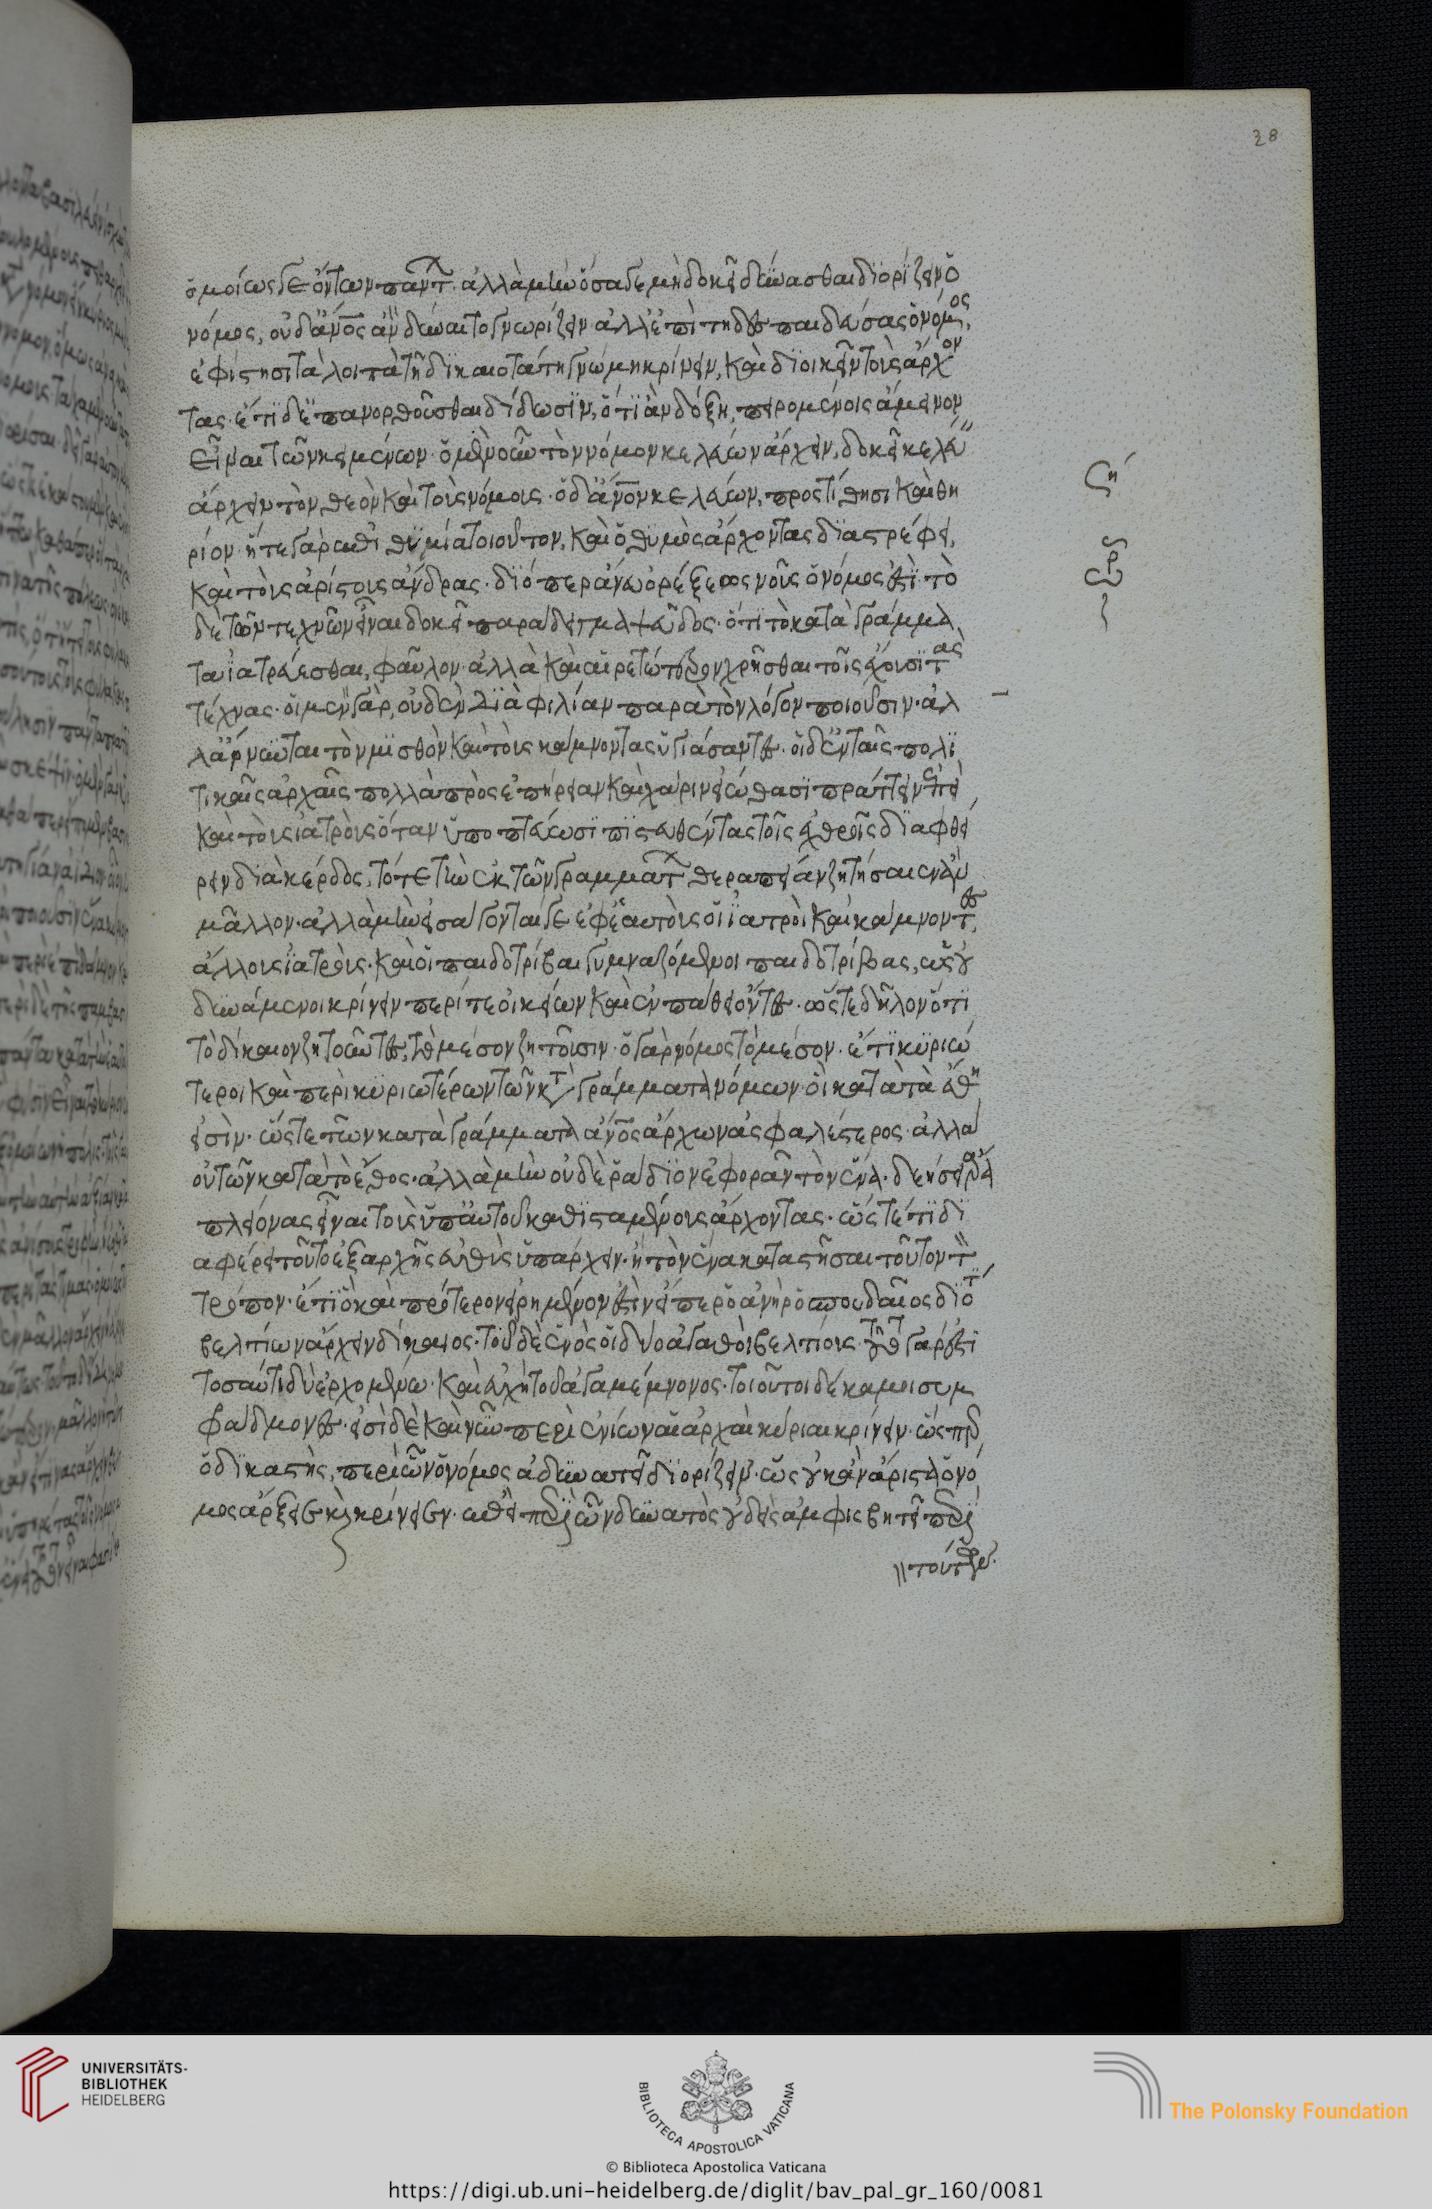 38
ὁμοίως δὲ ὄντων πάντων. ἀλλὰ μὴν ὅσα γε μὴ δοκεῖ δύνασθαι διορίζειν ὁ
νόμος, οὐδ' ἄνος ἂν δύναιτο γνωρίζειν. ἀλλ' ἐπίτηδες παιδεύσας ὁ νόμος,
ἐφίστησι τὰ λοιπὰ τῇ δικαιοτάτῃ γνώμῃ κρίνειν, καὶ διοικεῖν τοὺς ἄρχον
τας. ἔτι δὲ ἐπανορθοῦσθαι δίδωσιν, ὅτι ἂν δόξῃ, πειρωμένοις ἄμεινον
εἶναι τῶν κειμένων. ὁ μὲν οὖν τὸν νόμον κελεύων ἄρχειν, δοκεῖ κελεύειν
ἄρχειν τὸν θεὸν καὶ τοὺς νόμους. ὁ δ' ἄνον κελεύων, προστίθησι καὶ θη
ρίον. ἥ τε γὰρ ἐπιθυμία τοιοῦτον, καὶ ὁ θυμὸς ἄρχοντας διαστρέφει,
καὶ τοὺς ἀρίστους ἄνδρας. διόπερ ἄνευ ὀρέξεως νοῦς ὁ νόμος ἐστὶ. τὸ
δὲ τῶν τεχνῶν εἶναι δοκεῖ παράδειγμα ψεῦδος. ὅτι τὸ κατὰ γράμμα
τα ἰατρεύεσθαι, φαῦλον. ἀλλὰ καὶ αἱρετώτερον χρῆσθαι τοῖς ἔχουσι τὰς
τέχνας. οἱ μὲν γὰρ, οὐδὲν διὰ φιλίαν παρὰ τὸν λόγον ποιοῦσιν. ἀλ
λ' ἄρνυνται τὸν μισθὸν καὶ τοὺς κάμνοντας ὑγιάσαντες. οἱ δ' ἐν ταῖς πολι
τικαῖς ἀρχαῖς πολλὰ πρὸς ἐπήρειαν καὶ χάριν εἰώθασι πράττειν. ἐπεὶ
καὶ τοὺς ἰατροὺς ὅταν ὑποπτεύωσι πιστευθέντας τοῖς ἐχθροῖς διαφθεί
ρειν διὰ κέρδος, τότε τὴν ἐκ τῶν γραμμάτων θεραπείαν ζητήσαιεν ἂν
μᾶλλον. ἀλλὰ μὴν εἰσάγονταί γε ἐφ' ἑαυτοὺς οἱ ἰατροὶ καὶ κάμνοντες,
ἄλλους ἰατροὺς. καὶ οἱ παιδοτρίβαι γυμναζόμενοι παιδοτρίβας, ὡς οὐ
δυνάμενοι κρίνειν περί τε οἰκείων καὶ ἐν πάθει ὄντες. ὥστε δῆλον ὅτι
τὸ δίκαιον ζητοῦντες, τὸ μέσον ζητοῦσιν. ὁ γὰρ νόμος τὸ μέσον. ἔτι κυριώ
τεροι καὶ περὶ κυριωτέρων τῶν κατὰ γράμματα νόμων. οἱ κατὰ τὰ ἔθη
εἰσὶν. ὥστε τῶν κατὰ γράμματα ἄνος ἄρχων ἀσφαλέστερος. ἀλλ'
οὐ τῶν κατὰ τὸ ἔθος. ἀλλὰ μὴν οὐδὲ ῥᾴδιον ἐφορᾶν τὸν ἕνα. δεήσει ἄρα
πλείονας εἶναι τοὺς ὑπ' αὐτοῦ καθισταμένους ἄρχοντας. ὥστε τί δι
αφέρει τοῦτο ἐξ ἀρχῆς εὐθὺς ὑπάρχειν. ἢ τὸν ἕνα καταστῆσαι τοῦτον τὸν
τρόπον. ἔτι ὃ καὶ πρότερον εἰρημένον ἐστὶν εἴπερ ὁ ἀνὴρ ὁ σπουδαῖος διότι
βελτίων ἄρχειν δίκαιος. τοῦ δὲ ἑνὸς οἱ δύο ἀγαθοὶ βελτίους. τοῦτο γάρ ἐστι
τό σύν τε δύ' ἐρχομένω. καὶ εὐχὴ τοῦ ἀγαμέμνονος. τοιοῦτοι δέκα μοι συμ
φράδμονες. εἰσὶ δὲ καὶ νῦν περὶ ἐνίων αἱ ἀρχαὶ κύριαι κρίνειν. ὥσπερ
ὁ δικαστής, περὶ ὧν ὁ νόμος ἀδυνατεῖ διορίζειν. ὡς οὐκ ἂν ἄριστα ὁ νό
μος ἄρξειε καὶ κρίνειεν. ἐπεὶ περὶ ὧν δυνατὸς οὐδεὶς ἀμφισβητεῖ περὶ
τούτων
UNIVERSITÄTS-
BIBLIOTHEK
HEIDELBERG
BIBLIOTECA APOSTOLICA VATICANA
© Biblioteca Apostolica Vaticana
The Polonsky Foundation
https://digi.ub.uni-heidelberg.de/diglit/bav_pal_gr_160/0081